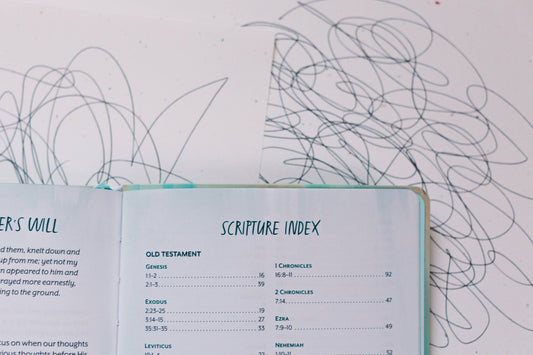 ER'S WILL
d them, knelt down and
up from me; yet not my
n appeared to him and
rayed more earnestly,
ng to the ground.
cus on when our thoughts
rious thoughts before His
SCRIPTURE INDEX
OLD TESTAMENT
GENESIS
1:1-2 16
2:1-3 39
EXODUS
2:23-25 19
3:14-15 27
35:31-35 33
LEVITICUS
1 CHRONICLES
16:8-11 92
2 CHRONICLES
7:14 47
EZRA
7:9-10 49
NEHEMIAH
1:10-11 52